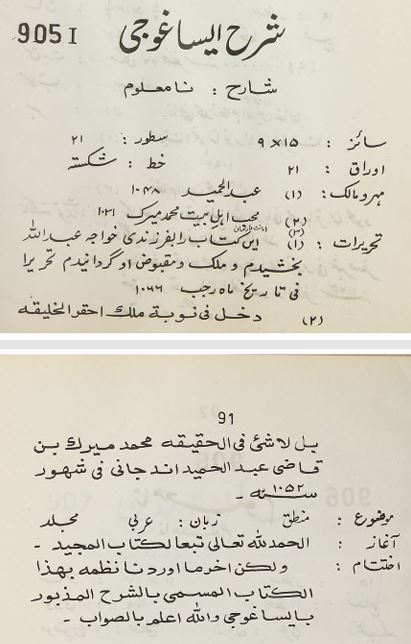 905 I
شرح ایساغوجی
شارح : نا معلوم
سائز : ۱۵ x ۹ سطور : ۲۱
اوراق : ۲۱ خط : شکستہ
مہر و مالک : (۱) عبدالحمید ۱۰۴۸
(۲) محب اہل بیت محمد میرک ۱۰۲۱
تحریرات : (۱) این کتاب را بفرزندی خواجہ عبداللہ
بخشیدم و ملک و مقبوض او گردانیدم تحریرا
فی تاریخ ماہ رجب ۱۰۶۶
(۲) دخل فی نوبة ملک احقر الخلیقه
91
بل لاشئ فی الحقیقه محمد میرک بن
قاضی عبد الحمید اندجانی فی شهور
سنه ۱۰۵۲ -
موضوع : منطق زبان : عربی مجلد
آغاز : الحمد لله تعالی تبعا لکتاب المجید -
اختتام : ولکن اخر ما اوردنا نظمه بهذا
الکتاب المسمی بالشرح المذبور
بایساغوجی والله اعلم بالصواب -